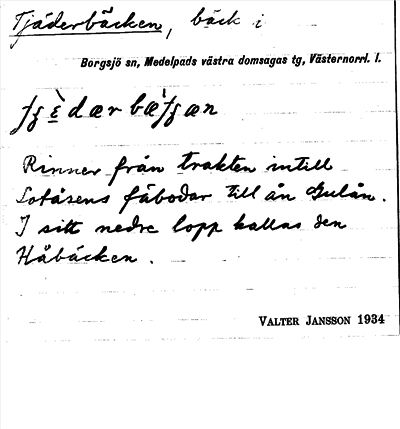 Tjäderbäcken, bäck i
Borgsjö sn, Medelpads västra domsagas tg, Västernorrl. l.
Rinner från trakten intill
Lotåsens fäbodar till ån Gulån.
I sitt nedre lopp kallas den
Håbäcken.
VALTER JANSSON 1934